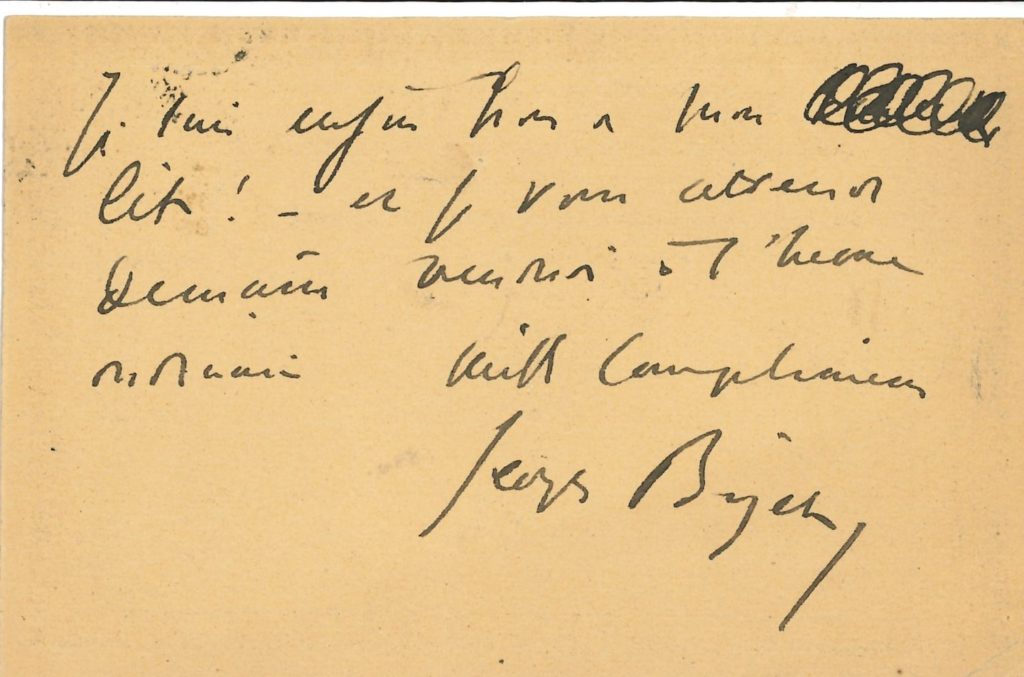 Je suis enfin hors de mon
lit ! – et je vous attends
demain vendredi à l'heure
ordinaire Mille compliments
Georges Bizet